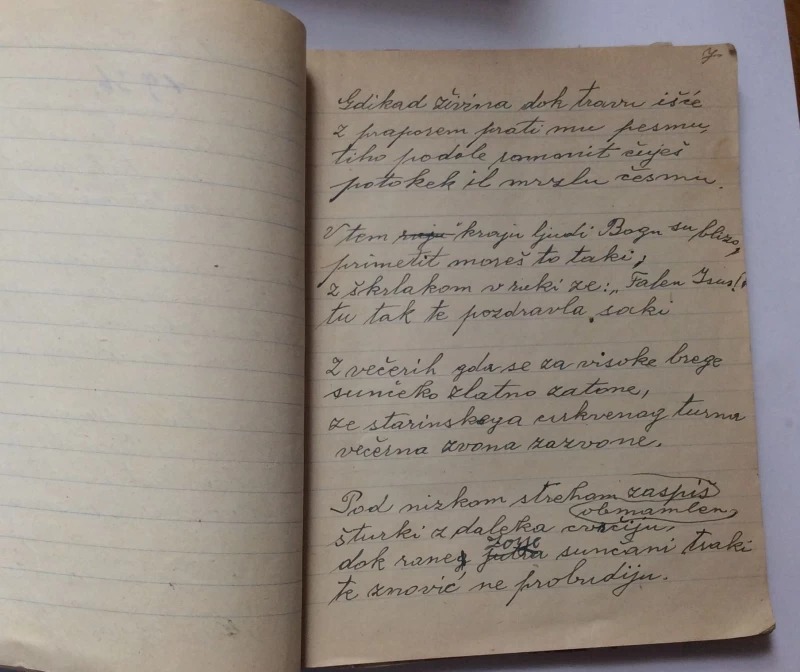 Gdikad živina doh travu išće
z praporem prati mu pesmu,
tiho podole romonit čuješ
potokek il mrzlu česmu.
V tem kraju ljudi Bogu su blizo,
primetit moreš to taki,
z škrlakom v ruki ze: „Falen Isus!"
tu tak te pozdravla saki
Z večerih gda se za visoke brege
sunčeko zlatno zatone,
ze starinskega curkvenog turna
večerna zvona zazvone.
Pod nizkom streham zaspiš
obmamlen,
šturki z daleka cvrčiju,
zorje
dok rane jutra sunčani traki
te znović ne probudiju.